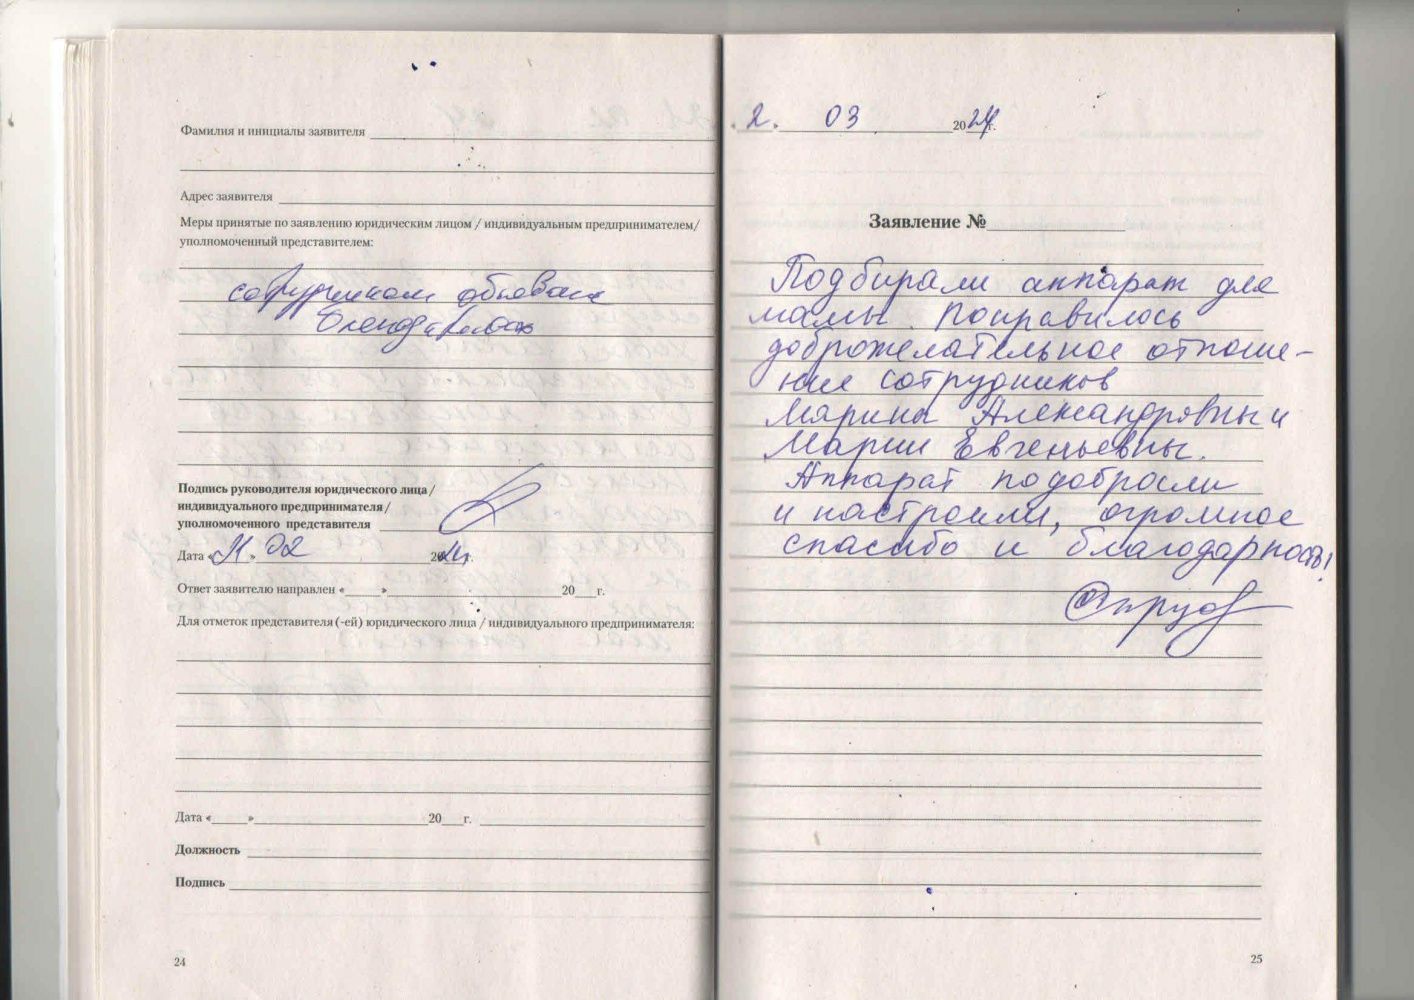 Фамилия и инициалы заявителя
Адрес заявителя
Меры принятые по заявлению юридическим лицом / индивидуальным предпринимателем/
уполномоченный представителем:
сотрудникам объявлена
благодарность
Подпись руководителя юридического лица /
индивидуального предпринимателя /
уполномоченного представителя
Дата « » 02 2024г.
Ответ заявителю направлен «____»____ 20__г.
Для отметок представителя (-ей) юридического лица / индивидуального предпринимателя:
Дата «____»____ 20__г.
Должность
Подпись
24
2. 03 2024г.
Заявление №
Подбирали аппарат для
мамы. Понравилось
доброжелательное отноше-
ние сотрудников
Марины Александровны и
Марии Евгеньевны.
Аппарат подобрали
и настроили, огромное
спасибо и благодарность!
25